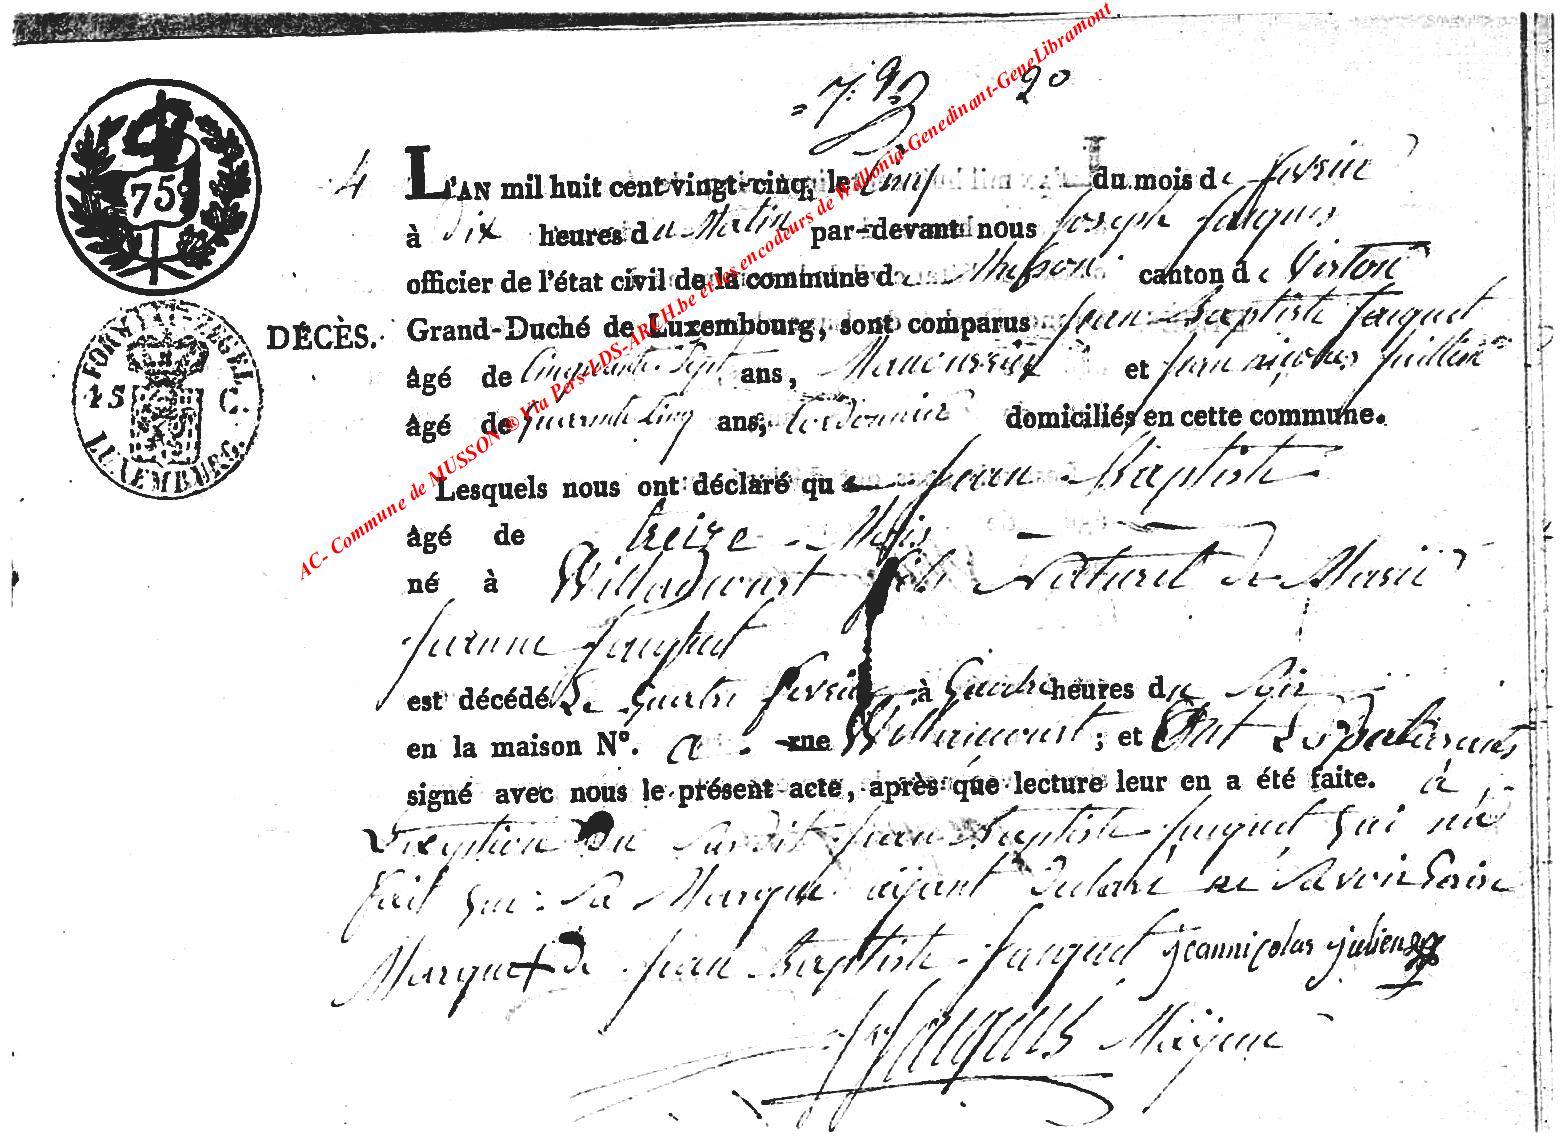 20
75
FORMAAT-ZEGEL
15 C.
LUXEMBURG.
4
L'AN mil huit cent vingt-cinq, le Cinq du mois de fevrier
à Dix heures du Matin par-devant nous Joseph Jacques
officier de l'état civil de la commune de Musson canton de Virton
DÉCÈS. Grand-Duché de Luxembourg, sont comparus Jean Baptiste Jacquet
âgé de Cinquante Sept ans, Manoeuvrier et jean nicolas Juillien
âgé de quarante Cinq ans, Cordonnier domiciliés en cette commune.
Lesquels nous ont déclaré que jean Baptiste
âgé de treize Mois
né à Willancourt fils Naturel de Marie
jeanne Jacquet
est décédé Le quatre fevrier à Quatre heures du Soir
en la maison N°. a rue Willancourt ; et Ont Les Declarants
signé avec nous le présent acte, après que lecture leur en a été faite. à
L'exeption Du Susdit jean Baptiste Jacquet qui n'a
fait que Sa Marque aijant Déclaré ne Savoir Ecrire
Marque + de jean Baptiste Jacquet jeannicolas julien
J Jacques Maijeur
AC- Commune de MUSSON ® Via Pers-LDS-ARCH.be et les encodeurs de Wallonia-Genedinant-GeneLibramont